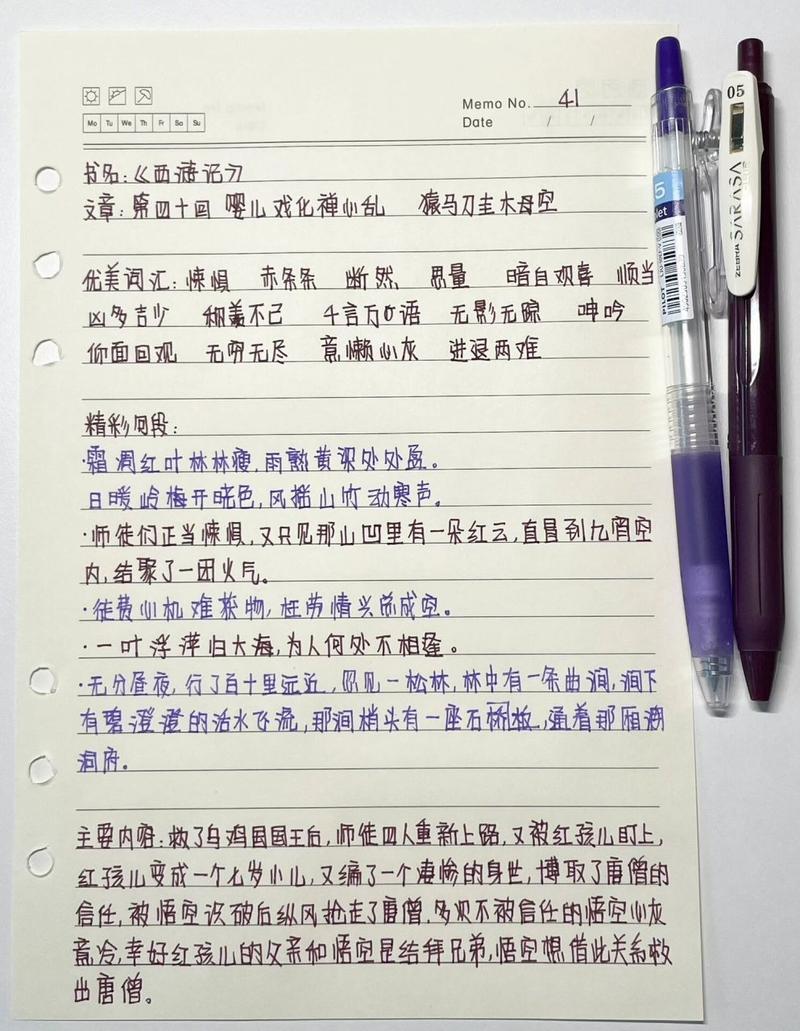 Memo No. 41
Mo Tu We Th Fr Sa Su
Date / /
书名:《西游记》
文章:第四十回 婴儿戏化禅心乱 猿马刀圭木母空
优美词汇:悚惧 赤条条 断然 思量 暗自观喜 顺当
凶多吉少 和美不已 千言万语 无影无踪 呻吟
仰面回观 无穷无尽 意懒心灰 进退两难
精彩句段:
·霜凋红叶林林瘦,雨熟黄粱处处盈。
日暖岭梅开晓色,风摇山竹动寒声。
·师徒们正当悚惧,又只见那山凹里有一朵红云,直冒到九霄空
内,结聚了一团火气。
·徒费心机难获物,枉劳情兴总成空。
·一叶浮萍归大海,为人何处不相逢。
·无分昼夜,行了百十里远近,忽见一松林,林中有一条曲涧,涧下
有碧澄澄的活水飞流,那涧梢头有一座石桥板,通着那厢
洞府。
主要内容:救了乌鸡国国王后,师徒四人重新上路,又被红孩儿盯上,
红孩儿变成一个七岁小儿,又编了一个凄惨的身世,博取了唐僧的
信任,被悟空识破后纵风抢走了唐僧,多次不被信任的悟空心灰
意冷,幸好红孩儿的父亲和悟空是结拜兄弟,悟空想借此关系救
出唐僧。
PILOT
05
ZEBRA SARASA